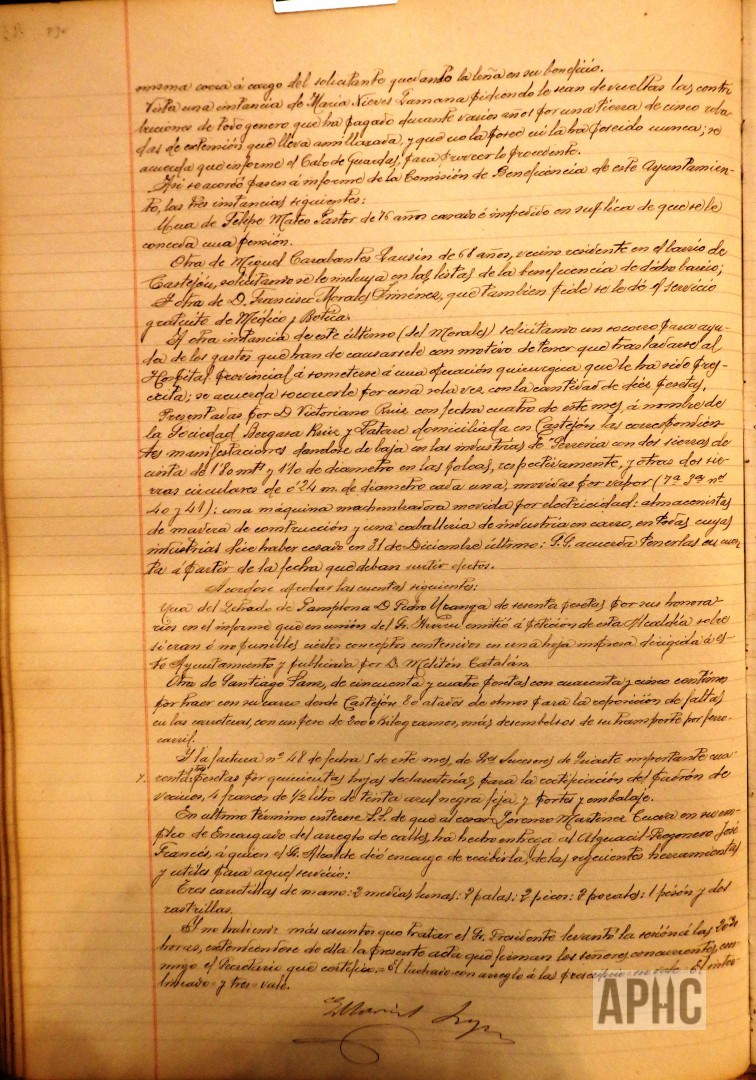 misma corra á cargo del solicitante quedando la leña en su beneficio.
Vista una instancia de Maria Nieves Lamana pidiendo le sean devueltas las contri-
buciones de todo genero que ha pagado durante varios años por una tierra de cinco roba-
das de extensión que lleva amillarada, y que no la posee ni la ha poseido nunca; se
acuerda que informe el Cabo de Guardas, para proveer lo procedente.
Asi se acordó pasen á informe de la Comisión de Beneficencia de este Ayuntamien-
to, las tres instancias siguientes:
Una de Felipe Mateo Pastor de 76 años casado é impedido en suplica de que se le
conceda una pensión.
Otra de Miguel Carabantes Lausin de 68 años, vecino residente en el barrio de
Castejón, solicitando se le incluya en las listas de la beneficencia de dicho barrio;
Y otra de D. Francisco Morales Jiménez, que tambien pide se le dé el servicio
gratuito de Médico y Botica.
A otra instancia de este último (del Morales) solicitando un socorro para ayu-
da de los gastos que han de causarsele con motivo de tener que trasladarse al
Hospital provincial á someterse á una operación quirurgica que le ha sido pres-
crita; se acuerda socorrerle por una sola vez con la cantidad de diez pesetas.
Presentadas por D Victoriano Ruiz con fecha cuatro de este mes, á nombre de
la Sociedad Bergasa Ruiz y Latorre domiciliada en Castejón las correspondien-
tes manifestaciones dandose de baja en las industrias de Serreria con dos sierras de
cinta de 1'80 mts y 1'10 de diametro en las poleas, respectivamente, y otras dos sie-
rras circulares de 0'24 m. de diametro cada una, movidas por vapor (7ª 3ª nº
40 y 41); una máquina machembradora movida por electricidad: almacenistas
de madera de construcción y una caballeria de industria en carro, en todas cuyas
industrias dice haber cesado en 31 de Diciembre último: S.S. acuerda tenerlas en cuen-
ta á partir de la fecha que deban surtir efectos.
Acordose aprobar las cuentas siguientes:
Una del Letrado de Pamplona D Pedro Uranga de sesenta pesetas por sus honora-
rios en el informe que en unión del Sr. emitió á petición de esta Alcaldía sobre
si eran ó no punibles ciertos conceptos contenidos en una hoja impresa dirigida á es-
te Ayuntamiento y publicada por D. Melitón Catalán.
Otra de Santiago Sanz, de cincuenta y cuatro pesetas con cuarenta y cinco centimos
por traer con su carro desde Castejón 80 atados de olmos para la reposición de faltas
en las carreteras, con un peso de 2000 kilogramos, más desembolsos de su transporte por ferro-
carril.
Y la factura nº 48 de fecha 5 de este mes, de los Sucesores de Iriarte importante cua-
renta y tres pesetas por quinientas hojas declaratorias, para la rectificación del padrón de
vecinos, 4 frascos de ½ litro de tinta azul negra fija y portes y embalaje.
En ultimo término enterose S.S. de que al cesar Lorenzo Martinez Cueva en su em-
pleo de Encargado del arreglo de calles, ha hecho entrega al Alguacil Pregonero José
Francés, á quien el Sr. Alcalde dió encargo de recibirla, de las siguientes herramientas
y utiles para aquel servicio:
Tres carretillas de mano: 2 medias lunas: 7 palas: 2 picos: 7 porcales: 1 pisón y dos
rastrillas.
Y no habiendo más asuntos que tratar el Sr. Presidente levantó la sesión á las 20'30
horas, extendiendose de ella la presente acta que firman los señores concurrentes, con-
migo el Secretario que certifico.= El tachado con arreglo á las = El inter-
lineado = y tres = vale.
APHC